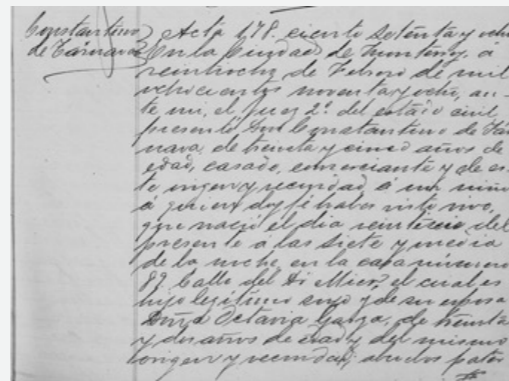 Constantino
de Tárnava
Acta 178. ciento setenta y ocho
En la Ciudad de Monterrey, á
veintiocho de Febrero de mil
ochocientos noventa y ocho, an-
te mi, el Juez 2º del estado civil
presentó Don Constantino de Tár-
nava, de treinta y cinco años de
edad, casado, comerciante y de es-
te origen y vecindad, á un niño
á quien doy fé haber visto vivo,
que nació el día del
presente á las siete y media
de la noche, en la casa número
89. Calle del Dr. Mier, el cual es
hijo legítimo suyo y de su esposa
Doña Octavia Garza, de treinta
y dos años de edad y del mismo
origen y vecindad; abuelos pater